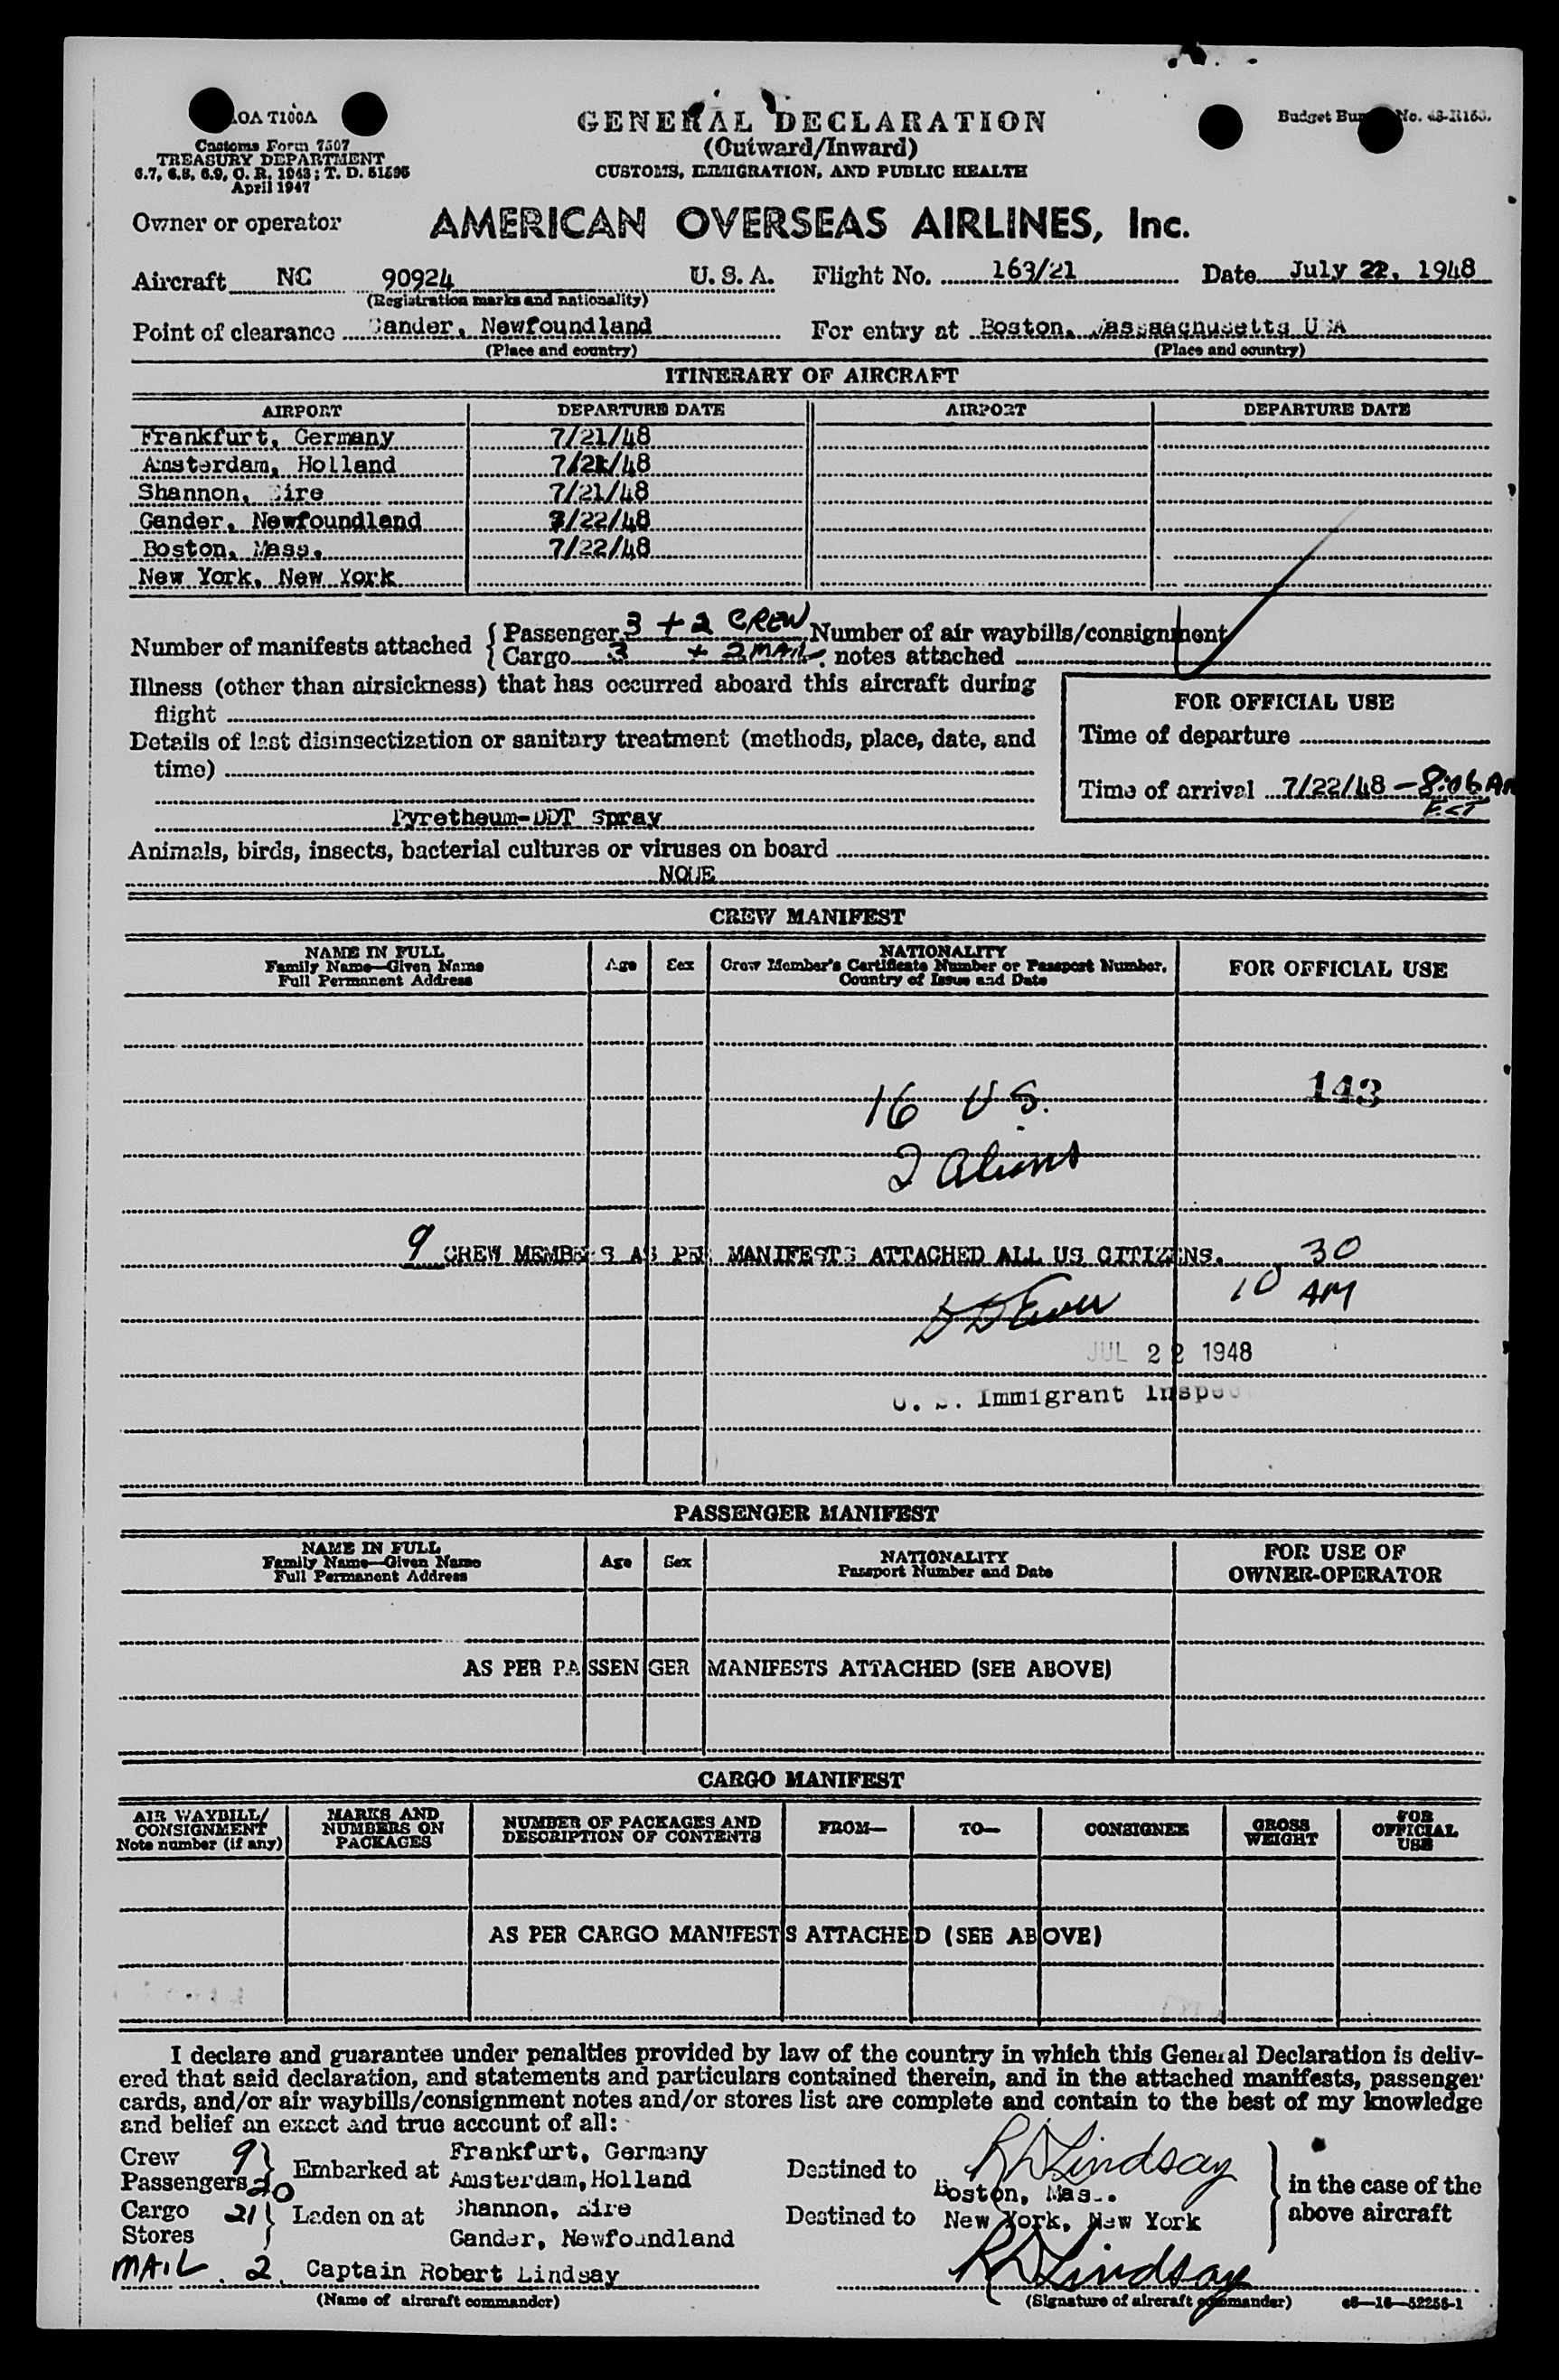 AOA T100A
Customs Form 7507
TREASURY DEPARTMENT
6.7, 6.8, 6.9, C. R. 1943; T. D. 51595
April 1947
GENERAL DECLARATION
(Outward/Inward)
CUSTOMS, IMMIGRATION, AND PUBLIC HEALTH
Budget Bureau No. 48-R153.
Owner or operator AMERICAN OVERSEAS AIRLINES, Inc.
Aircraft NC 90924 U. S. A. Flight No. 163/21 Date July 22, 1948
(Registration marks and nationality)
Point of clearance Gander, Newfoundland For entry at Boston, Massaachusetts USA
(Place and country) (Place and country)
ITINERARY OF AIRCRAFT
AIRPORT DEPARTURE DATE AIRPORT DEPARTURE DATE
Frankfurt, Germany 7/21/48
Amsterdam, Holland 7/21/48
Shannon, Eire 7/21/48
Gander, Newfoundland 7/22/48
Boston, Mass. 7/22/48
New York, New York
Number of manifests attached { Passenger 3 + 2 CREW Number of air waybills/consignment
{ Cargo 3 + 2 MAIL notes attached
Illness (other than airsickness) that has occurred aboard this aircraft during
flight
Details of last disinsectization or sanitary treatment (methods, place, date, and
time)
Pyretheum-DDT Spray
FOR OFFICIAL USE
Time of departure
Time of arrival 7/22/48 - 8:06 AM
EST
Animals, birds, insects, bacterial cultures or viruses on board
NOUE
CREW MANIFEST
NAME IN FULL
Family Name—Given Name
Full Permanent Address
Age Sex
NATIONALITY
Crew Member's Certificate Number or Passport Number,
Country of Issue and Date
FOR OFFICIAL USE
143
16 US.
2 Aliens
9 CREW MEMBERS AS PER MANIFESTS ATTACHED ALL US CITIZENS. 30
10 AM
JUL 22 1948
U. S. Immigrant Inspec
PASSENGER MANIFEST
NAME IN FULL
Family Name—Given Name
Full Permanent Address
Age Sex
NATIONALITY
Passport Number and Date
FOR USE OF
OWNER-OPERATOR
AS PER PASSENGER MANIFESTS ATTACHED (SEE ABOVE)
CARGO MANIFEST
AIR WAYBILL/
CONSIGNMENT
Note number (if any)
MARKS AND
NUMBERS ON
PACKAGES
NUMBER OF PACKAGES AND
DESCRIPTION OF CONTENTS
FROM—
TO—
CONSIGNEE
GROSS
WEIGHT
FOR
OFFICIAL
USE
AS PER CARGO MANIFESTS ATTACHED (SEE ABOVE)
I declare and guarantee under penalties provided by law of the country in which this General Declaration is deliv-
ered that said declaration, and statements and particulars contained therein, and in the attached manifests, passenger
cards, and/or air waybills/consignment notes and/or stores list are complete and contain to the best of my knowledge
and belief an exact and true account of all:
Crew 9
Passengers 20
} Embarked at
Frankfurt, Germany
Amsterdam, Holland
Destined to
R D Lindsay
Boston, Mass.
Cargo 21
Stores
} Laden on at
Shannon, Eire
Gander, Newfoundland
Destined to New York, New York
} in the case of the
above aircraft
MAIL 2 Captain Robert Lindsay R D Lindsay
(Name of aircraft commander) (Signature of aircraft commander) c6—16—52255-1